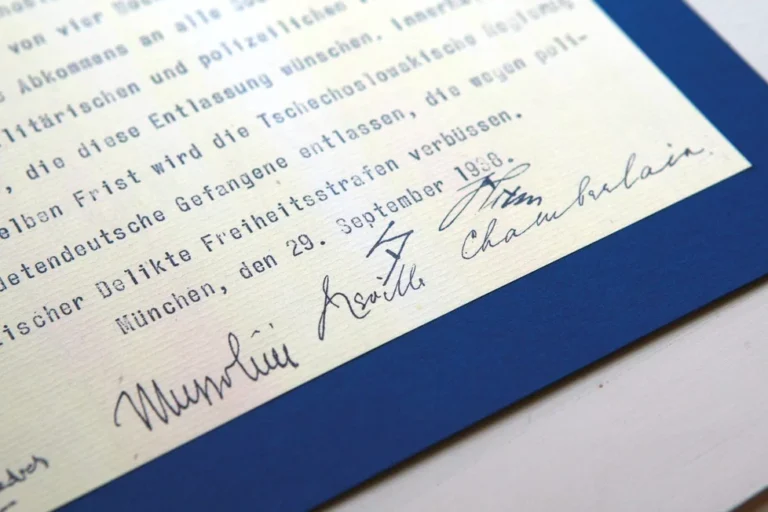 von vier
Abkommens an alle
militärischen und polizeilichen
, die diese Entlassung wünschen, innerh
selben Frist wird die Tschechoslowakische Regierung
detendeutsche Gefangene entlassen, die wegen poli-
tischer Delikte Freiheitsstrafen verbüssen.
München, den 29. September 1938.
Neville Chamberlain.
Mussolini